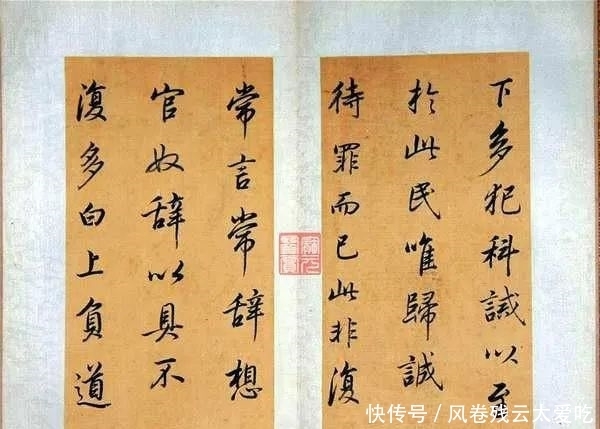 下多犯科誡以至
於此民唯歸誠
待罪而已此非復
常言常辭想
官奴辭以具不
復多白上負道
快传号／风卷残云太爱吃